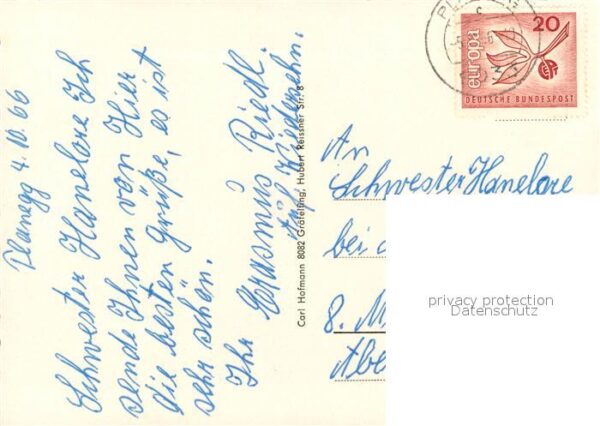 Planegg 4.10.66
Schwester Hanelore Ich
sende Ihnen von Hier
die besten Grüße, es ist
sehr schön.
Ihr Erasmus Riedl.
Auf Wiedersehn.
Carl Hofmann 8082 Gräfelfing, Hubert Reissner Str. 8
europa
20
DEUTSCHE BUNDESPOST
An
Schwester Hanelore
bei
8. M
Abe
privacy protection
Datenschutz